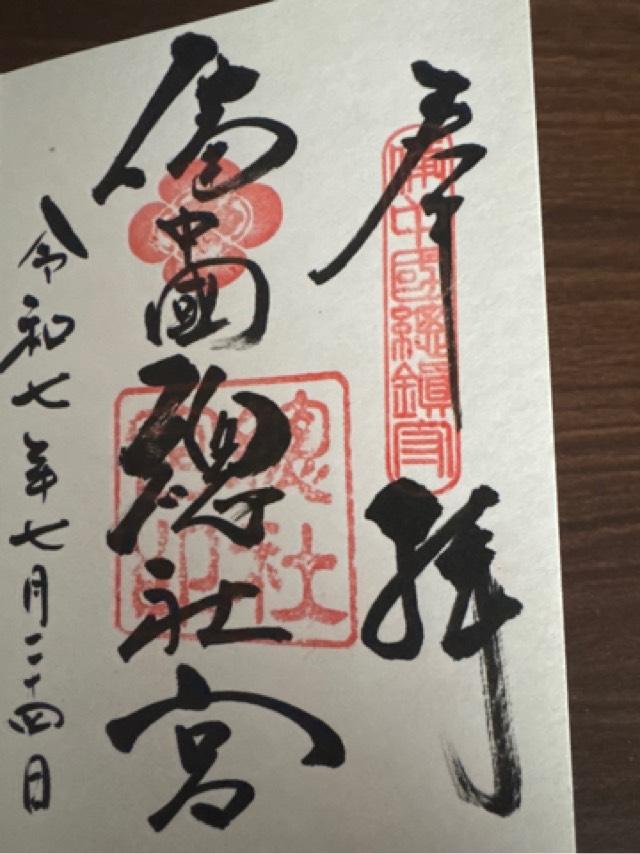 奉拝
備中國總鎮守
備中國
總社宮
總社宮印
令和七年七月二十四日